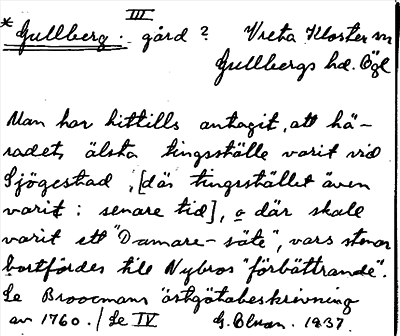 III
* Gullberg. gård? Vreta Kloster sn
Gullbergs hd. Ögl
Man har hittills antagit, att hä-
radets älsta tingsställe varit vid
Sjögestad, [där tingsstället även
varit i senare tid], o där skall
varit ett "Domare-säte", vars stenar
bortfördes till Nybros "förbättrande".
Se Broocmans östgötabeskrivning
av 1760. / Se IV G. 1937.